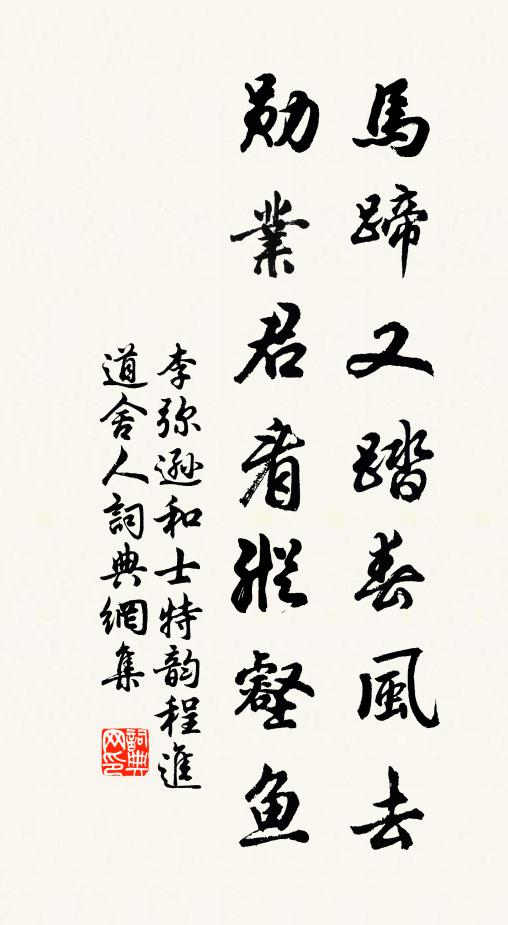 馬蹄又踏春風去
勛業君看縱壑魚
李弥遜和士特韵程進
道舍人詞典網集
詞典网印